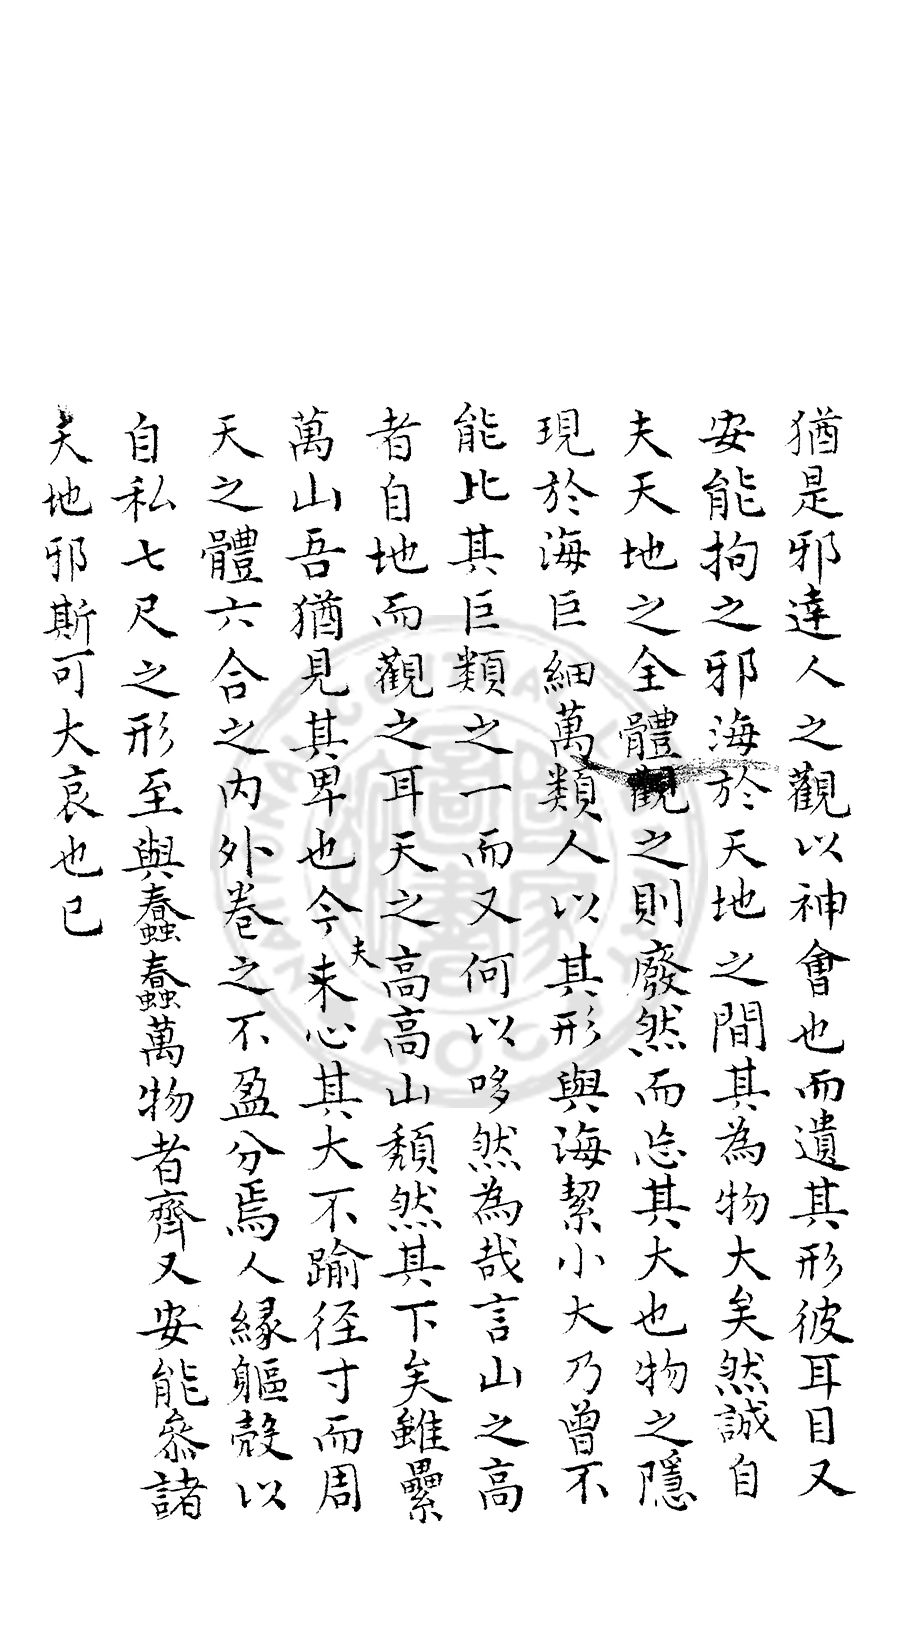 猶是邪達人之觀以神會也而遺其形彼耳目又
安能拘之邪海於天地之間其為物大矣然誠自
夫天地之全體觀之則廢然而忘其大也物之隱
現於海巨細萬類人以其形與海絜小大乃曾不
能比其巨類之一而又何以哆然為哉言山之高
者自地而觀之耳天之高高山頹然其下矣雖纍
萬山吾猶見其卑也今夫來心其大不踰徑寸而周
天之體六合之內外卷之不盈分焉人緣軀殼以
自私七尺之形至與蠢蠢萬物者齊又安能參諸
天地邪斯可大哀也已